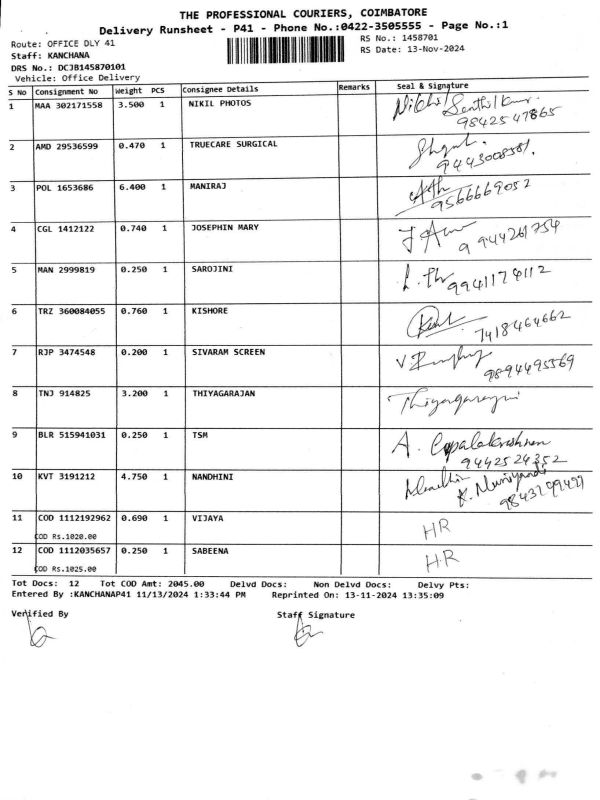 THE PROFESSIONAL COURIERS, COIMBATORE
Delivery Runsheet - P41 - Phone No.:0422-3505555 - Page No.:1
Route: OFFICE DLY 41
RS No.: 1458701
Staff: KANCHANA
RS Date: 13-Nov-2024
DRS No.: DCJB145870101
Vehicle: Office Delivery
S No Consignment No Weight PCS Consignee Details Remarks Seal & Signature
1 MAA 302171558 3.500 1 NIKIL PHOTOS
9842547865
2 AMD 29536599 0.470 1 TRUECARE SURGICAL
9443008581.
3 POL 1653686 6.400 1 MANIRAJ
9566669052
4 CGL 1412122 0.740 1 JOSEPHIN MARY
9944261754
5 MAN 2999819 0.250 1 SAROJINI
9941174112
6 TRZ 360084055 0.760 1 KISHORE
7418464662
7 RJP 3474548 0.200 1 SIVARAM SCREEN
9894495569
8 TNJ 914825 3.200 1 THIYAGARAJAN
9 BLR 515941031 0.250 1 TSM A. Gopalakrishnan
9442524352
10 KVT 3191212 4.750 1 NANDHINI
11 COD 1112192962 0.690 1 VIJAYA HR
COD Rs.1020.00
12 COD 1112035657 0.250 1 SABEENA H.R
COD Rs.1025.00
Tot Docs: 12 Tot COD Amt: 2045.00 Delvd Docs: Non Delvd Docs: Delvy Pts:
Entered By :KANCHANAP41 11/13/2024 1:33:44 PM Reprinted On: 13-11-2024 13:35:09
Verified By Staff Signature